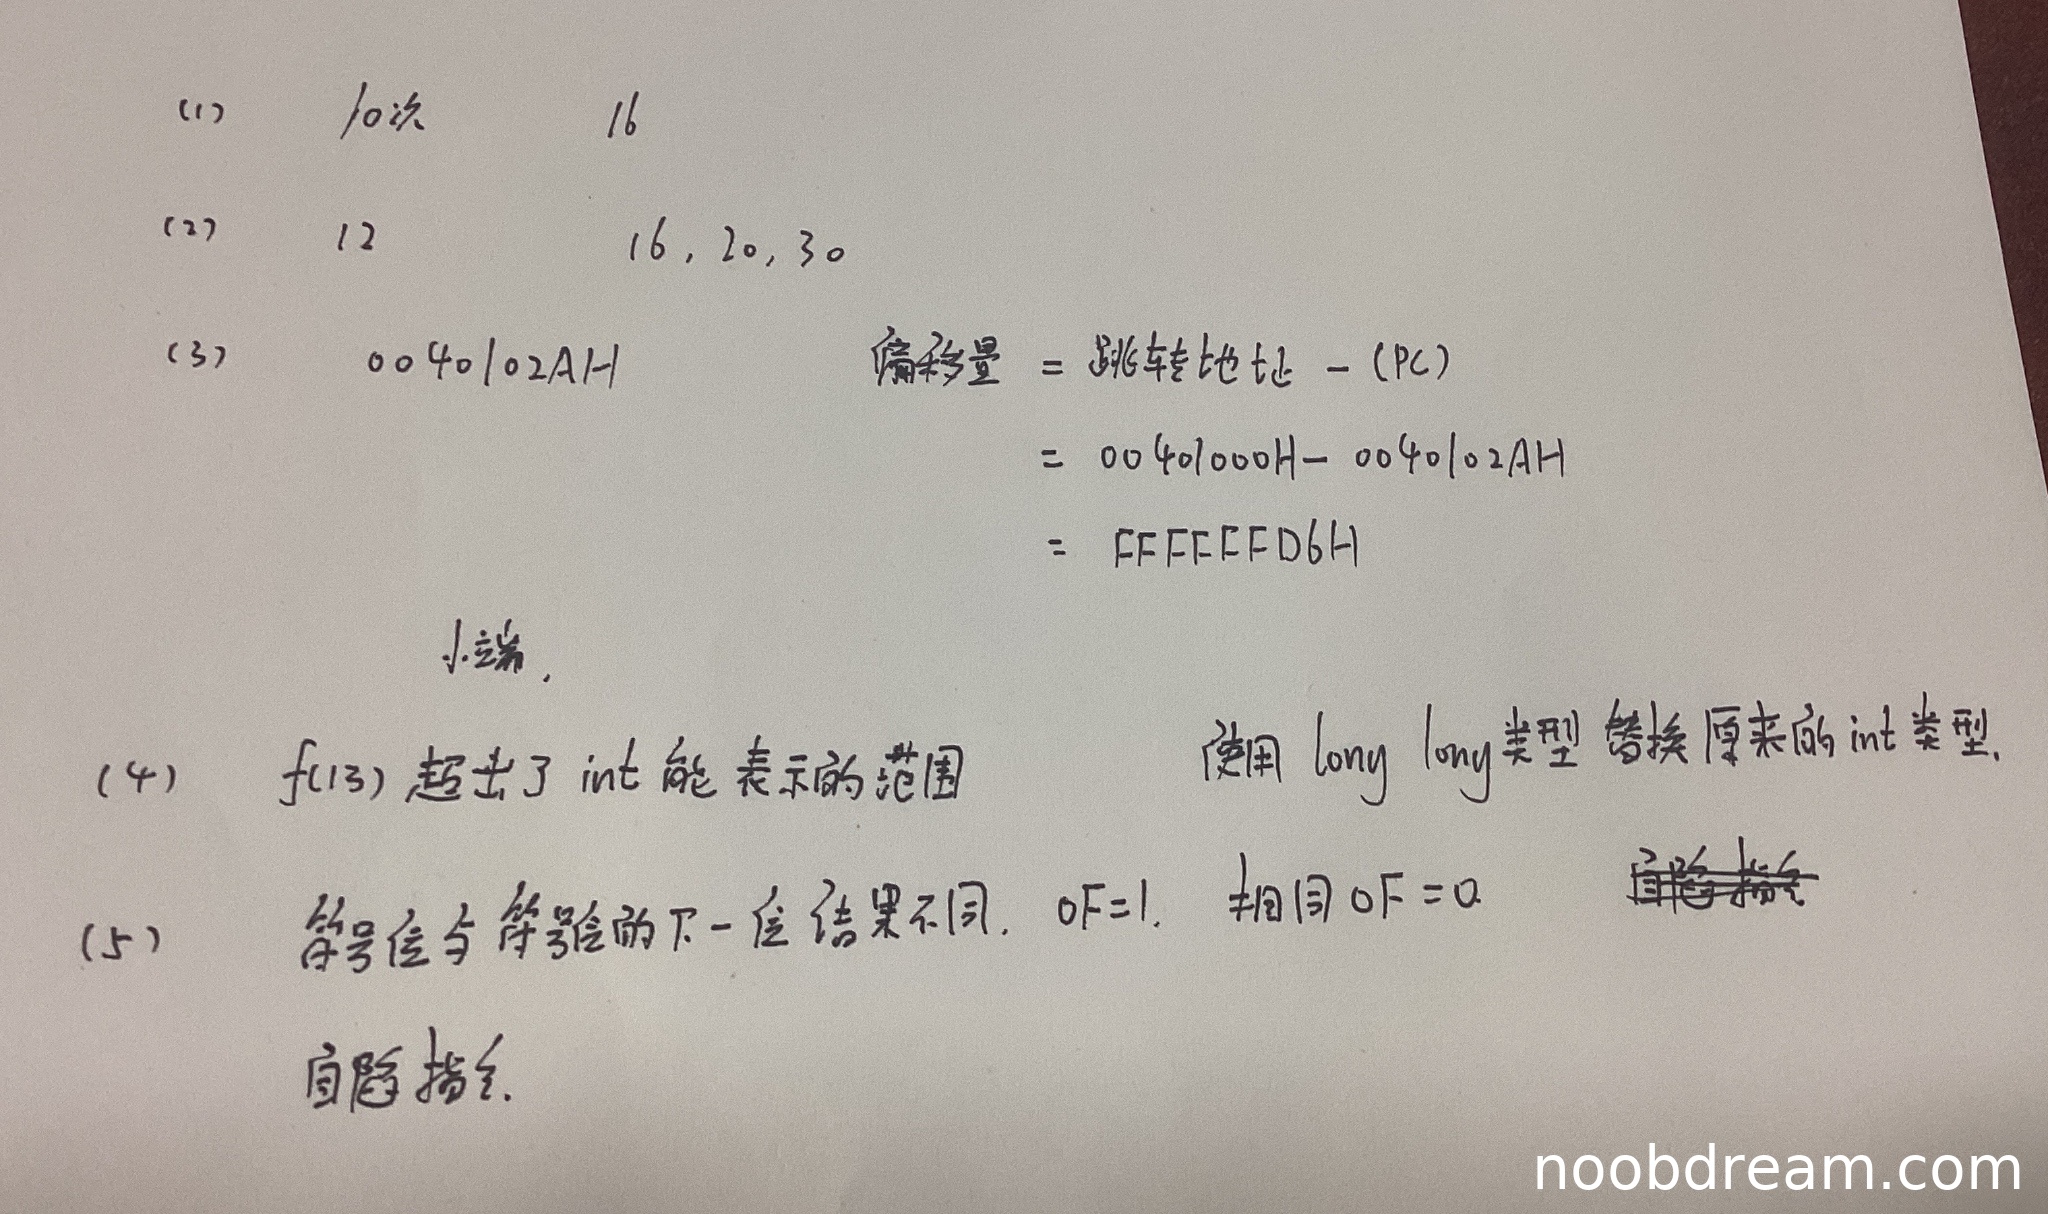 (1) 10次 16
(2) 12 16, 20, 30
(3) 0040102AH 偏移量 = 跳转地址 - (PC)
= 00401000H - 0040102AH
= FFFFFFD6H
小端.
(4) f(13) 超出了 int 能表示的范围 使用 long long 类型 替换原来的 int 类型.
(5) 符号位与符号位的下一位结果不同. OF=1. 相同 OF=0.
自陷指令.
noobdream.com